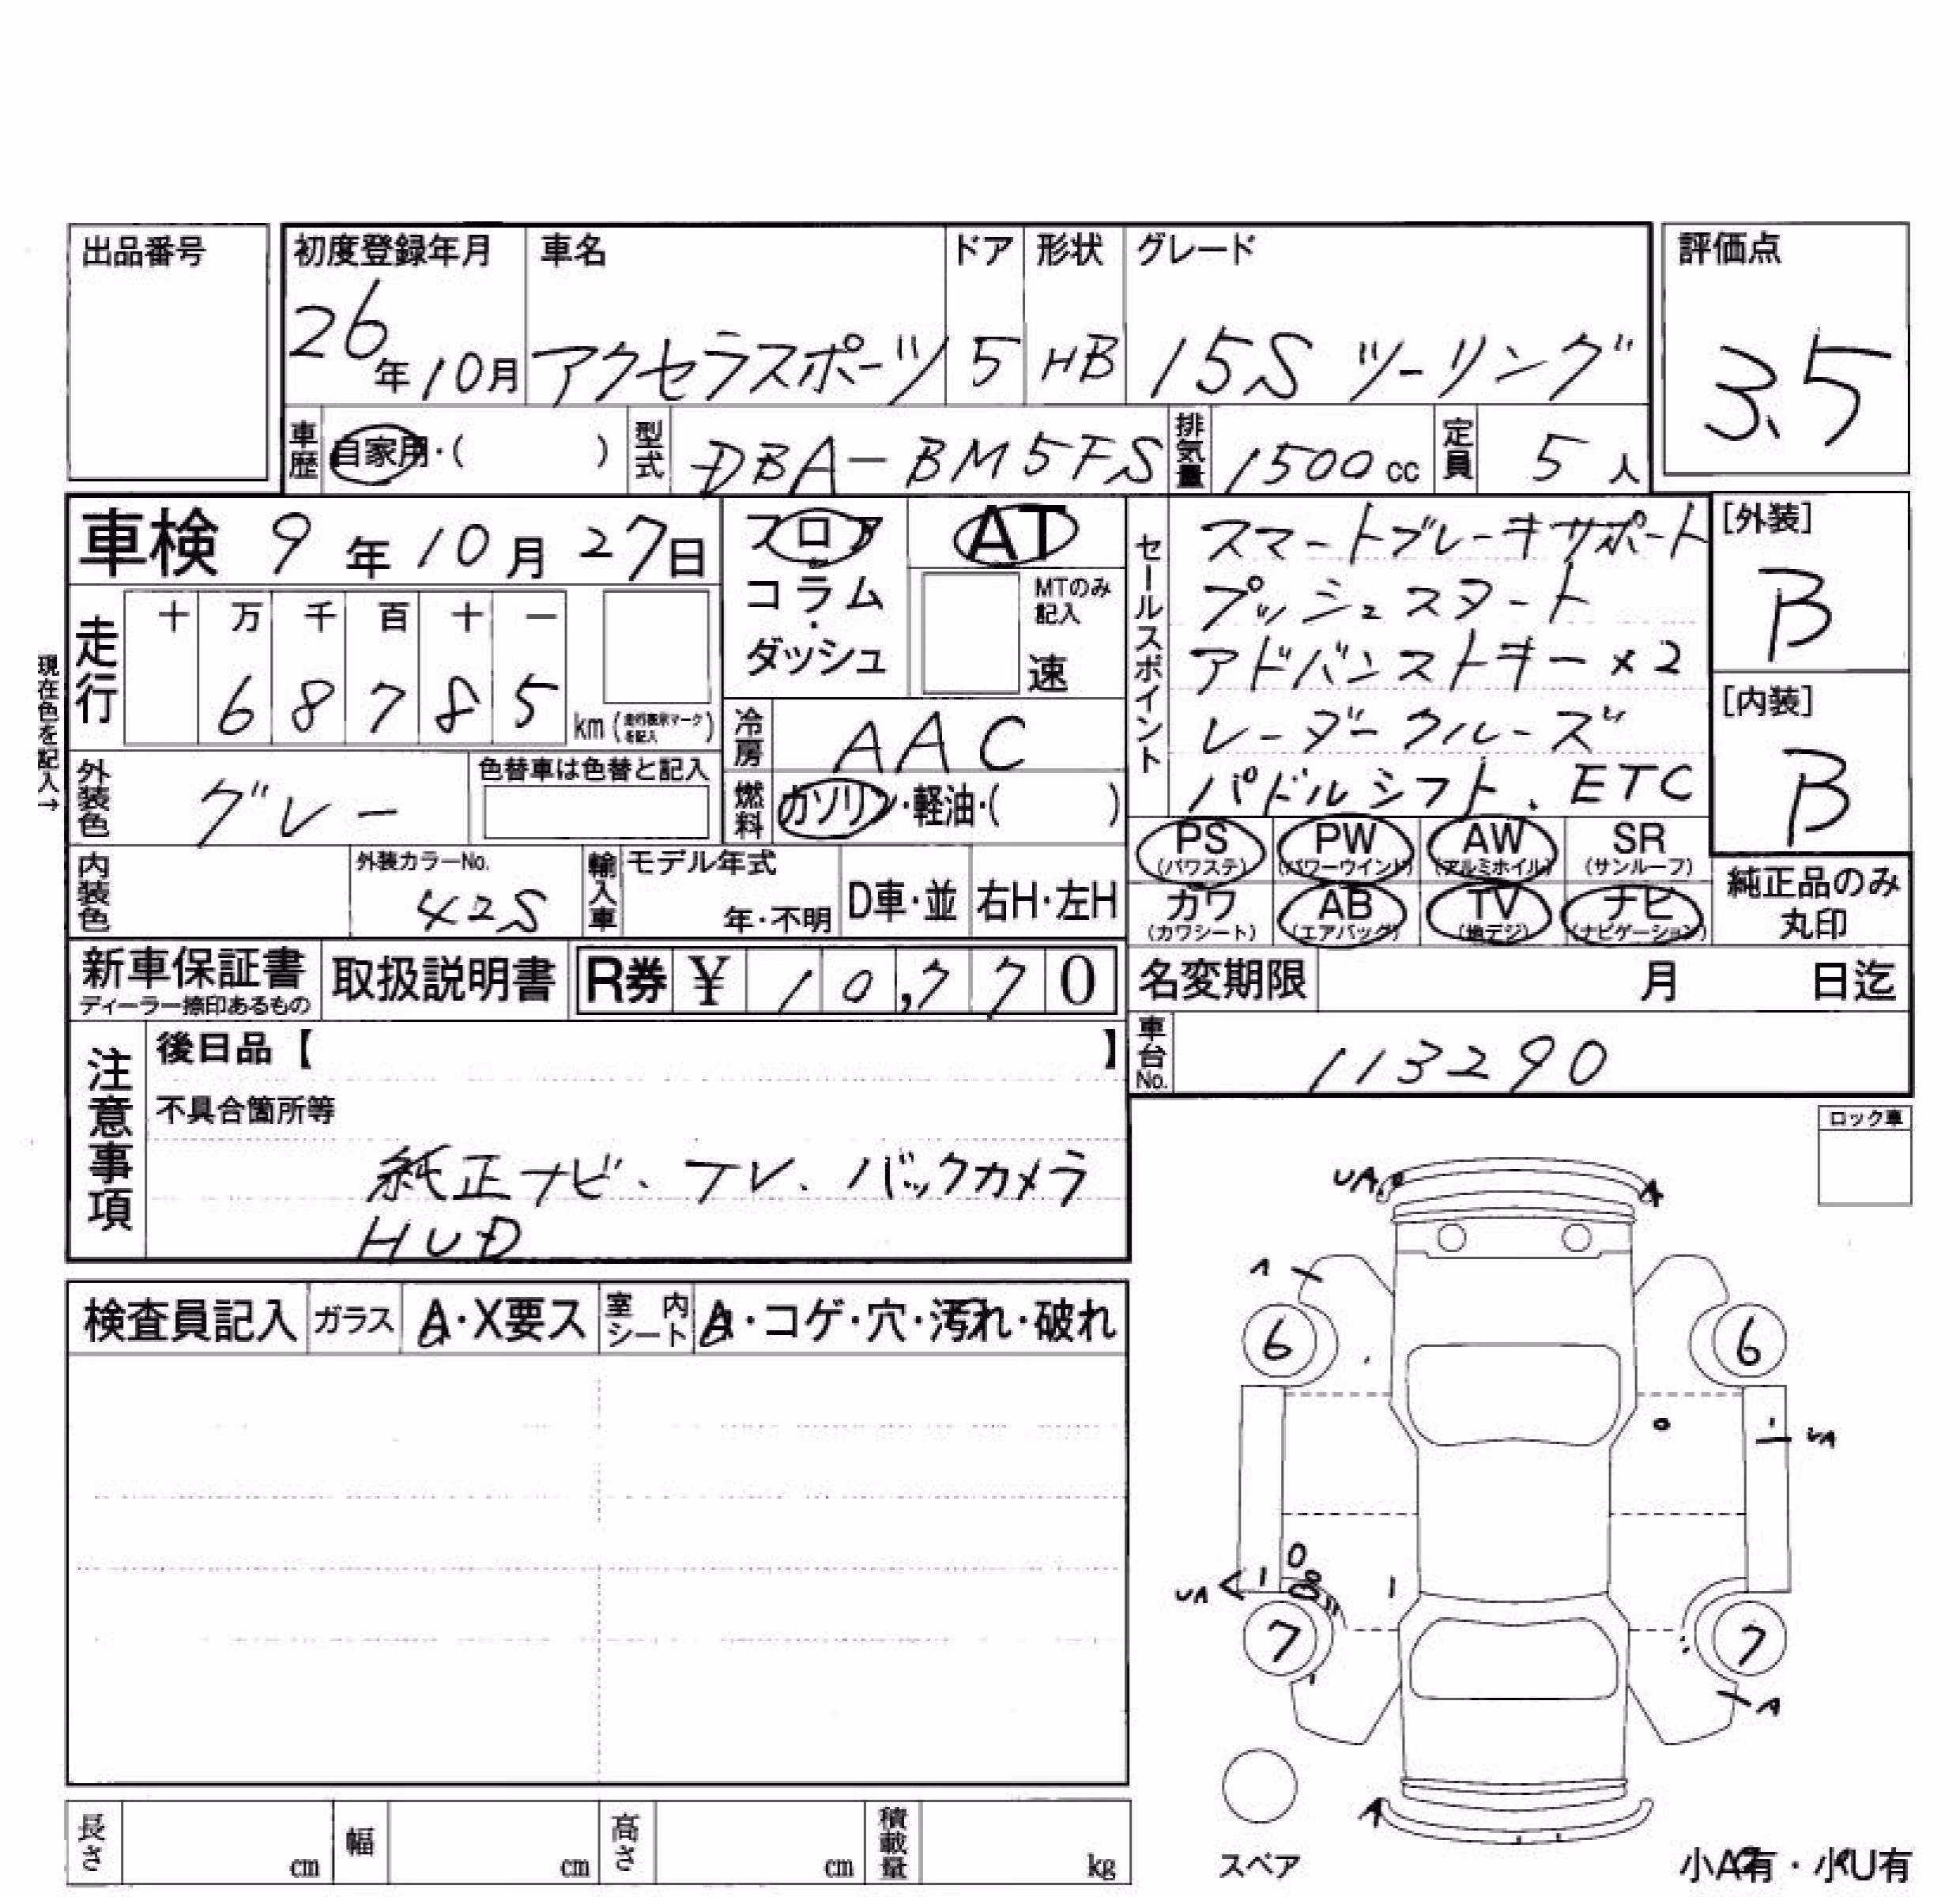 出品番号
初度登録年月 車名 ドア 形状 グレード 評価点
26年10月 アクセラスポーツ 5 HB 15S ツーリング 3.5
車歴 自家用・( ) 型式 DBA-BM5FS 排気量 1500cc 定員 5人
車検 9年10月27日
フロア・コラム・ダッシュ
AT
MTのみ記入
速
セールスポイント
スマートブレーキサポート
プッシュスタート
アドバンストキー×2
レーダークルーズ
パドルシフト、ETC
[外装]
B
[内装]
B
現在色を記入→
走行 十 万 千 百 十 一
6 8 7 8 5 km(走行表示マークを記入)
冷房 AAC
外装色 グレー 色替車は色替と記入
燃料 ガソリン・軽油・( )
PS (パワステ) PW (パワーウインド) AW (アルミホイル) SR (サンルーフ)
カワ (カワシート) AB (エアバッグ) TV (地デジ) ナビ (ナビゲーション)
純正品のみ丸印
内装色 外装カラーNo. 42S 輸入車 モデル年式 年・不明 D車・並 右H・左H
新車保証書 ディーラー捺印あるもの 取扱説明書 R券 ¥ 10,770
名変期限 月 日迄
車台No. 113290
注意事項
後日品【 】
不具合箇所等
純正ナビ、テレ、バックカメラ
HUD
ロック車
検査員記入 ガラス A・X要ス 室内シート A・コゲ・穴・汚れ・破れ
UA A
A
6 6
UA
UA
7 7
A
A
スペア
小A有・小U有
長さ cm 幅 cm 高さ cm 積載量 kg